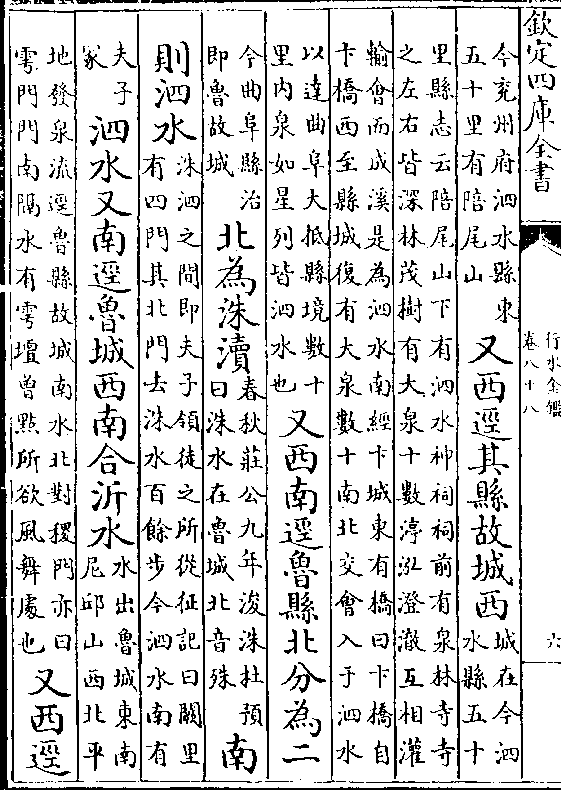 欽定四庫全書
行水金鑑
卷八十八
六
今兗州府泗水縣東
五十里有陪尾山
又西逕其縣故城西
城在今泗
水縣五十
里縣志云陪尾山下有泗水神祠祠前有泉林寺寺
之左右皆深林茂樹有大泉十數渟泓澄澈互相灌
輸會而成溪是為泗水南經卞城東有橋曰卞橋自
卞橋西至縣城復有大泉數十南北交會入于泗水
以達曲阜大抵縣境數十
里内泉如星列皆泗水也
又西南逕魯縣北分為二
今曲阜縣治
即魯故城
北為洙瀆
春秋莊公九年浚洙杜預
曰洙水在魯城北音殊
南
則泗水
洙泗之間即夫子領徒之所從征記曰闕里
有四門其北門去洙水百餘步今泗水南有
夫子
冢
泗水又南逕魯城西南合沂水
水出魯城東南
尼邱山西北平
地發泉流逕魯縣故城南水北對稷門亦曰
雩門門南隔水有雩壇曾點所欲風舞處也
又西逕